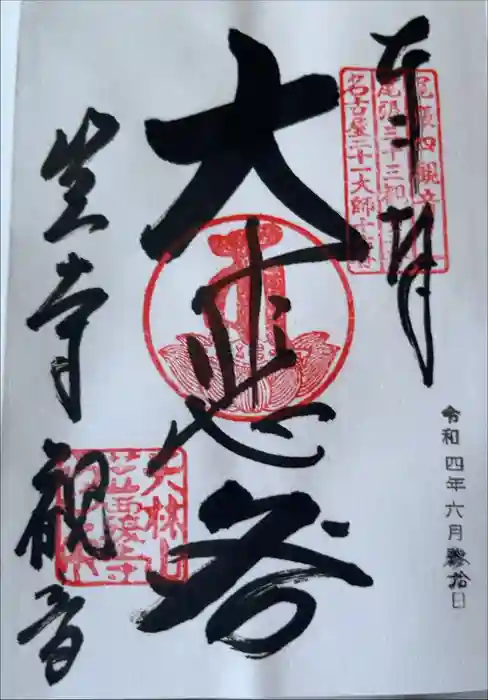 奉拝
尾張四観音
尾張三十三観音
名古屋二十一大師十番
大悲殿
笠寺観音
天林山
笠覆寺
令和四年六月拾日